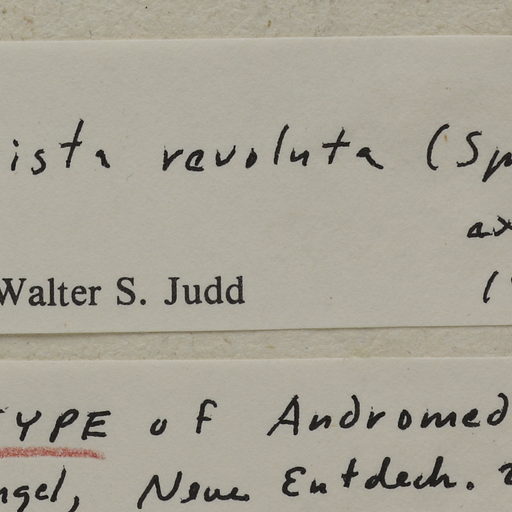 ista revoluta (Sp
ax
Walter S. Judd
TYPE of Andromed
ngel, Neue Entdeck. 2